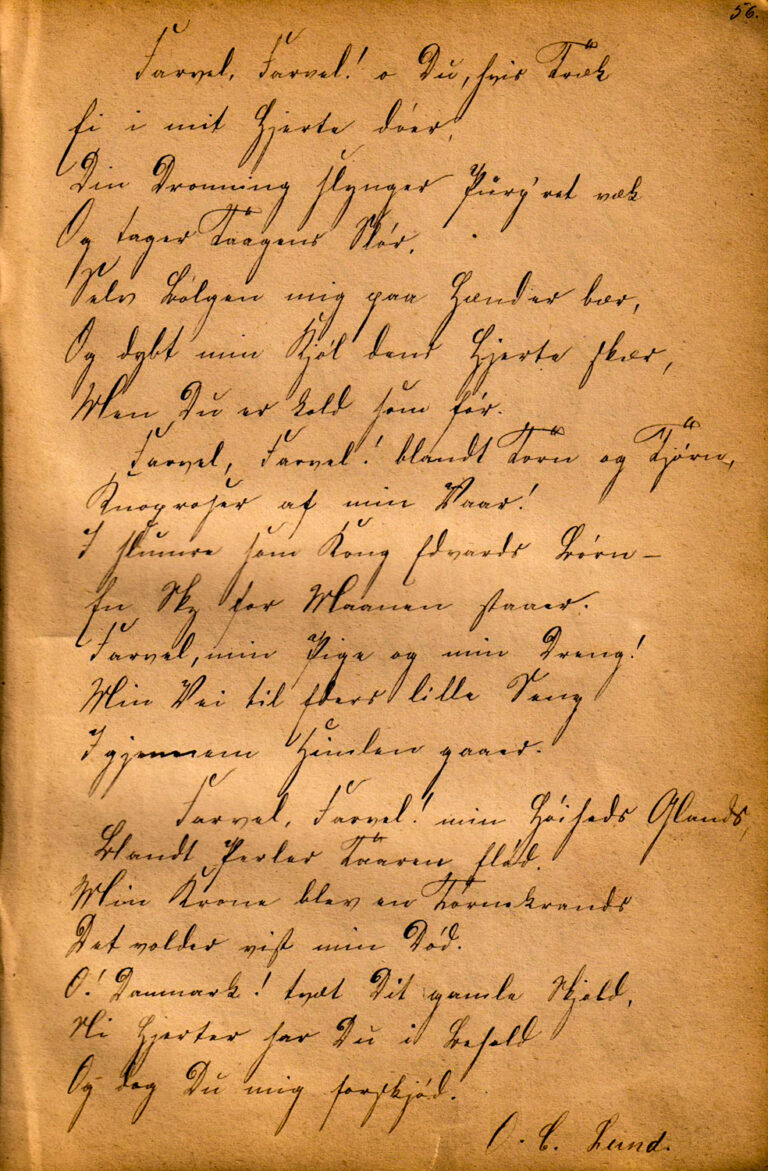 56.
Farvel, Farvel! o Du, hvis Træk
Ei i mit Hjerte döer,
Din Dronning slynger Purp'ret væk
Og tager Taagens Slör.
Selv Bölgen mig paa Hænder bær,
Og dybt min Kjöl dens Hjerte skær,
Men Du er kold som för.
Farvel, Farvel! blandt Törn og Tjörn,
Knoproser af min Vaar!
I slumre som Kong Edvards Börn —
En Sky for Maanen staaer.
Farvel, min Pige og min Dreng!
Min Vei til Eders lille Seng
Igjennem Himlen gaaer.
Farvel, Farvel! min Höiheds Glands,
Blandt Perler Taaren flöd.
Min Krone blev en Törnekrands
Det volder vist min Död.
O! Danmark! tvæt Dit gamle Skjold,
Ni Hjerter har Du i Behold
Og dog Du mig forskjöd.
O. C. Lund.